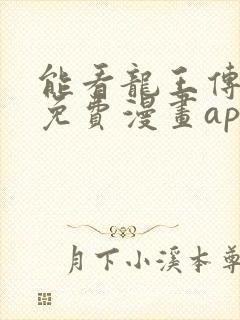 能看龍王傳
免費漫畫ap
月下小溪本尊